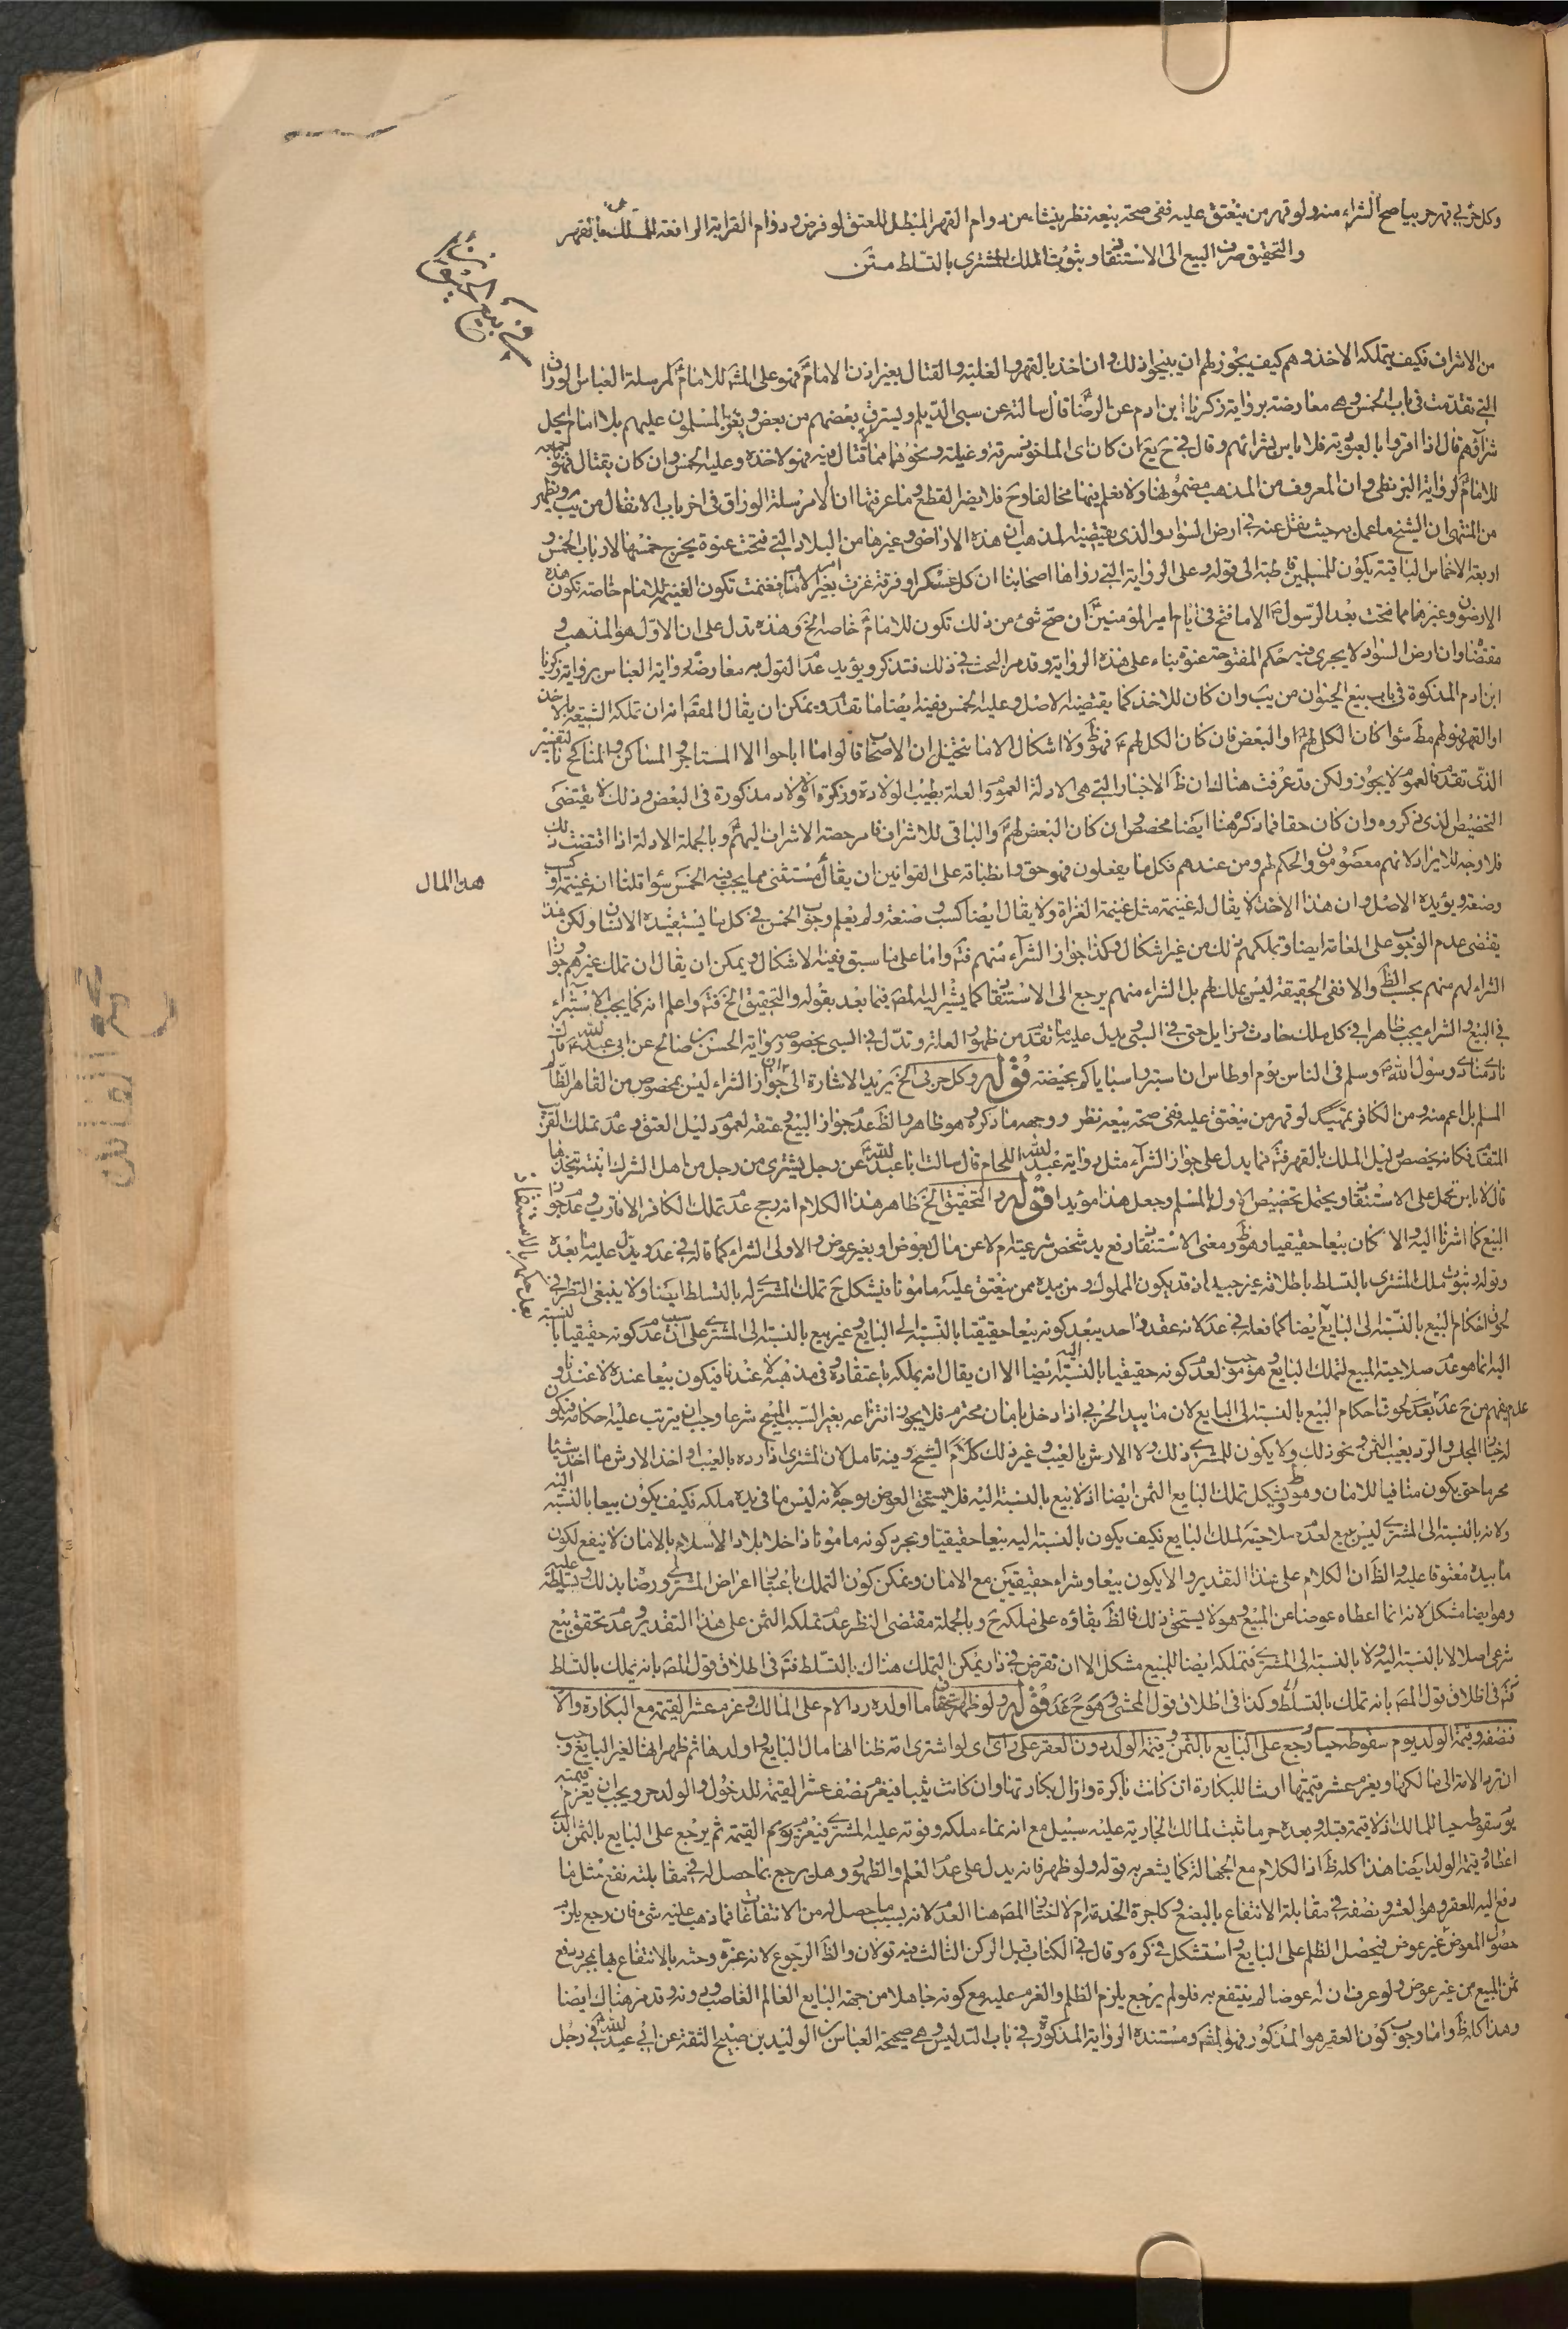 وكل حربي قهر حربيا صح الشراء منه ولو قهر من ينعتق عليه ففى صحة بيعه نظر ينشاء من دوام القهر المبطل للعتق لو فرض و دوام القرابة الرافعة للملك بالقهر
والتحقيق صرف البيع الى الاستنقاذ و ثبوت الملك للمشترى بالتسلط متن
فى بيع الحيوان
من الاشراف فكيف يتملكه الاخذ و هم كيف يجوز لهم ان يبيحوا ذلك و ان اخذ بالقهر و الغلبة و القتال بغير اذن الامام فهو على المشه للامام لمرسلة العباس الوراق
التى تقدمت فى باب الخمس و هى معارضة برواية زكريا بن ادم عن الرضا قال سالته عن سبى الديلم و يسرق بعضهم من بعض و يغير المسلمون عليهم بلا امام ايحل
شراؤهم قال اذا اقروا بالعبودية فلا باس بشرائهم و قال فى ح يع ان كان اى الماخوذ سرقة و غيلة و نحوهما مما لا قتال فيه فهو لاخذه و عليه الخمس و ان كان بقتال فهو
للامام لرواية البزنطى و ان المعروف من المذهب مضمونها و لا نعلم فيها مخالفا و ح فلا يضر القطع و ما عرفتها الا مرسلة الوراق فى اخر باب الانفال من يب و يظهر
من المنتهى ان الشيخ ما عمل به حيث نقل عنه فى ارض السواد و الذى يقتضيه المذهب ان هذه الاراضى و غيرها من البلاد التى فتحت عنوة يخرج خمسها لارباب الخمس و
اربعة الاخماس الباقية يكون للمسلمين قاطبة الى قوله و على الرواية التى رواها اصحابنا ان كل عسكر او فرقة غزت بغير امر الامام فغنمت تكون الغنيمة للامام خاصة تكون هذه
الارضون و غيرها مما فتحت بعد الرسول الا ما فتح فى ايام امير المؤمنين ان صح شئ من ذلك تكون للامام خاصة الخ و هذه تدل على ان الاول هو المذهب و
مقتضاه ان ارض السواد لا يجرى فيه حكم المفتوحة عنوة بناء على هذه الرواية و قد مر البحث فى ذلك فتذكر و يؤيد عدم القول به معارضة رواية العباس برواية زكريا
ابن ادم المذكورة فى باب بيع الحيوان من يب و ان كان للاخذ كما يقتضيه الاصل و عليه الخمس ففيه ايضا ما تقدم و يمكن ان يقال المقصد انه ان تملكه الشيعة بالاخذ
او القهر فهو لهم مط سواء كان الكل لهم او البعض فان كان الكل لهم فهو ظ و لا اشكال الا ما يتخيل ان الاصحاب قالوا ما اباحوا الا المتاجر و المساكن و المناكح بالتفسير
الذى تقدم فالعموم لا يجوز و لكن قد عرفت هناك ان ظ الاخبار التى هى الادلة العموم و العلة بطيب الولادة و زكوة الاولاد مذكورة فى البعض و ذلك لا يقتضى
التخصيص الذى ذكروه و ان كان حقا فما ذكره هنا ايضا مخصوص ان كان البعض لهم و الباقى للاشراف فامر حصة الاشراف اليهم و بالجملة الادلة اذا اقتضت ذلك
فلا وجه للايراد لانهم معصومون و الحكم لهم و من عندهم فكل ما يفعلون فهو حق و انطباقه على القوانين ان يقال مستثنى مما يجب فيه الخمس سواء قلنا انه غنيمة او كسب
هذا المال
و صنعة و يؤيده الاصل و ان هذا الاخذ لا يقال له غنيمة مثل غنيمة الغزاة و لا يقال ايضا كسب و صنعة و لم يعلم وجوب الخمس فى كل ما يستفيده الانسان و لكن هذا
يقتضى عدم الوجوب على العامة ايضا و تملكهم ذلك من غير اشكال و كذا جواز الشراء منهم فتم و اما على ما سبق ففيه الاشكال و يمكن ان يقال ان تملك غيرهم و جواز
الشراء لهم منهم بحسب الظ و الا ففى الحقيقة ليس بملك لهم بل الشراء منهم يرجع الى الاستنقاذ كما يشير اليه المصه فيما بعد بقوله و التحقيق الخ فتم و اعلم انه كما يجب الاستبراء
فى البيع و الشراء يجب ظاهرا فى كل ملك حادث و زايل حتى فى السبى يدل عليه ما تقدم من ظهور العلة و تدل فى السبى بخصوصه رواية الحسن بن صالح عن ابى عبد الله قال
نادى منادى رسول الله صلى و سلم فى الناس يوم اوطاس ان استبرؤا سباياكم بحيضة قوله و كل حربى الخ يريد الاشارة الى ان جواز الشراء ليس بمخصوص من القاهر الظالم
المسلم بل اعم منه و من الكافر لو قهر من ينعتق عليه ففى صحة بيعه نظر و وجهه ما ذكره و هو ظاهر و الظ عدم جواز البيع و عتقه لعموم دليل العتق و عدم تملك القريب
المتقدم فكانه يخصص دليل الملك بالقهر فتم فما يدل على جواز الشراء مثل رواية عبد الله اللحام قال سالت ابا عبد الله عن رجل يشترى من رجل من اهل الشرك ابنته يتخذها
قال لا باس تحمل على الاستنقاذ و يحتمل تخصيص الاول بالمسلم و جعل هذا مؤيدا قوله و التحقيق الخ ظاهر هذا الكلام انه رجح عدم تملك الكافر الاقارب و عدم جواز
البيع كما اشرنا اليه و الا كان بيعا حقيقيا و هو ظ و معنى الاستنقاذ رفع يد شخص شرعية ام لا عن مال بعوض او بغير عوض و الاولى الشراء كما قاله فى عد و يدل عليه ما بعده
و قوله و ثبوت ملك المشترى بالتسلط باطلاقه غير جيد اذ قد يكون المملوك و من بيده ممن ينعتق عليه مامونا فيشكل ح تملك المشترى له بالتسلط ايضا و لا ينبغى النظر فى
لحوق احكام البيع بالنسبة الى البايع ايضا كما فعله فى عد لانه عقد واحد يبعد كونه بيعا حقيقيا بالنسبة الى البايع و غير بيع بالنسبة الى المشترى على ان سبب عدم كونه حقيقيا بالنسبة
اليه انما هو عدم صلاحية المبيع لتملك البايع و هو موجب لعدم كونه حقيقيا بالنسبة اليه ايضا الا ان يقال انه يملكه باعتقاده و فى مذهبه لا عندنا فيكون بيعا عنده لا عندنا و
علم منهم من ح عد بعد لحوق احكام البيع بالنسبة الى البايع لان ما بيد الحربى اذا دخل بامان محترم فلا يجوز انتزاعه بغير السبب المبيح شرعا و جب ان يترتب عليه احكامه فيكون
له خيار المجلس و الرد بعيب الثمن و نحو ذلك و لا يكون للمشترى ذلك و لا الارش بالعيب و غير ذلك كلام الشيخ و فيه تامل لان المشترى اذا رده بالعيب و اخذ الارش ما اخذ شيئا
محرما حتى يكون منافيا للامان و هو ظ و يشكل تملك البايع الثمن ايضا اذ لا بيع بالنسبة اليه فلا يستحق العوض بوجه لانه ليس ما فى يده ملكه فكيف يكون بيعا بالنسبة اليه
و لانه بالنسبة الى المشترى ليس ببيع لعدم صلاحيته لملك البايع فكيف يكون بالنسبة اليه بيعا حقيقيا و مجرد كونه مامونا داخلا بلاد الاسلام بالامان لا ينفع لكون
ما بيده معتوقا عليه و الظ ان الكلام على هذا التقدير و الا يكون بيعا و شراء حقيقيين مع الامان و يمكن كون التملك باعتبار اعراض المشترى و رضاه بذلك و تسليطه عليه
و هو ايضا مشكل لانه انما اعطاه عوضا عن المبيع و هو لا يستحق ذلك فالظ بقاؤه على ملكه ح و بالجملة مقتضى النظر عدم تملكه الثمن على هذا التقدير و عدم تحقق بيع
شرعى اصلا لا بالنسبة اليه و لا بالنسبة الى المشترى فتملكه ايضا للمبيع مشكل الا ان تفرض فى دار يمكن التملك هناك بالتسلط فتم فى اطلاق قول المصه بانه يملك بالتسلط
فتم فى اطلاق قول المصه بانه تملك بالتسلط و كذا فى اطلاق قول المحشى و هو ح عد قوله و لو ظهر استحقاق ما اولده رد الام على المالك و غرم عشر القيمة مع البكارة و الا
نصفه و قيمة الولد يوم سقوطه حيا و رجع على البايع بالثمن و قيمة الولد دون العقر على راى اى لو اشترى امة ظنا انها مال البايع و اولدها ثم ظهر انها لغير البايع وجب
ان ترد الامة الى مالكها و يغرم عشر قيمتها ارشا للبكارة ان كانت باكرة و ازال بكارتها و ان كانت ثيبا فيغرم نصف عشر القيمة للدخول و الولد حر و يجب ان يغرم قيمته
يوم سقوطه حيا للمالك اذ لا قيمة قبله و بعده حر ما ثبت لمالك الجارية عليه سبيل مع انه نماء ملكه و فوته عليه المشترى فيغرم القيمة ثم يرجع على البايع بالثمن الذى
اعطاه و قيمة الولد ايضا هذا كله ظ اذ الكلام مع الجهالة كما يشعر به قوله و لو ظهر فانه يدل على عدم العلم و الظهور و هل يرجع بما حصل له فى مقابلته نفع مثل ما
دفع اليه للعقر و هو العشر و نصفه فى مقابلة الانتفاع بالبضع و كاجرة الخدمة ام لا اختيار المصه هنا العدم لانه بسبب ما حصل له من الانتفاعات فما ذهب عليه شئ فان رجع يلزم
حصول المعوض بغير عوض فيحصل الظلم على البايع و استشكل فى كره و قال فى الكتاب قبل الركن الثالث فيه قولان و الظ الرجوع لانه غره و حثه بالانتفاع بها بمجرد دفع
ثمن المبيع من غير عوض و لو عرف ان له عوضا لم ينتفع به فلو لم يرجع يلزم الظلم و الغرم عليه مع كونه جاهلا من جهة البايع العالم الغاصب دونه و قد مر هناك ايضا
و هذا كله ظ و اما وجوب كون العقر هو المذكور فهو المشه و مستنده الرواية المذكورة فى باب التدليس و هى صحيحة العباس بن الوليد بن صبيح الثقة عن ابى عبد الله فى رجل